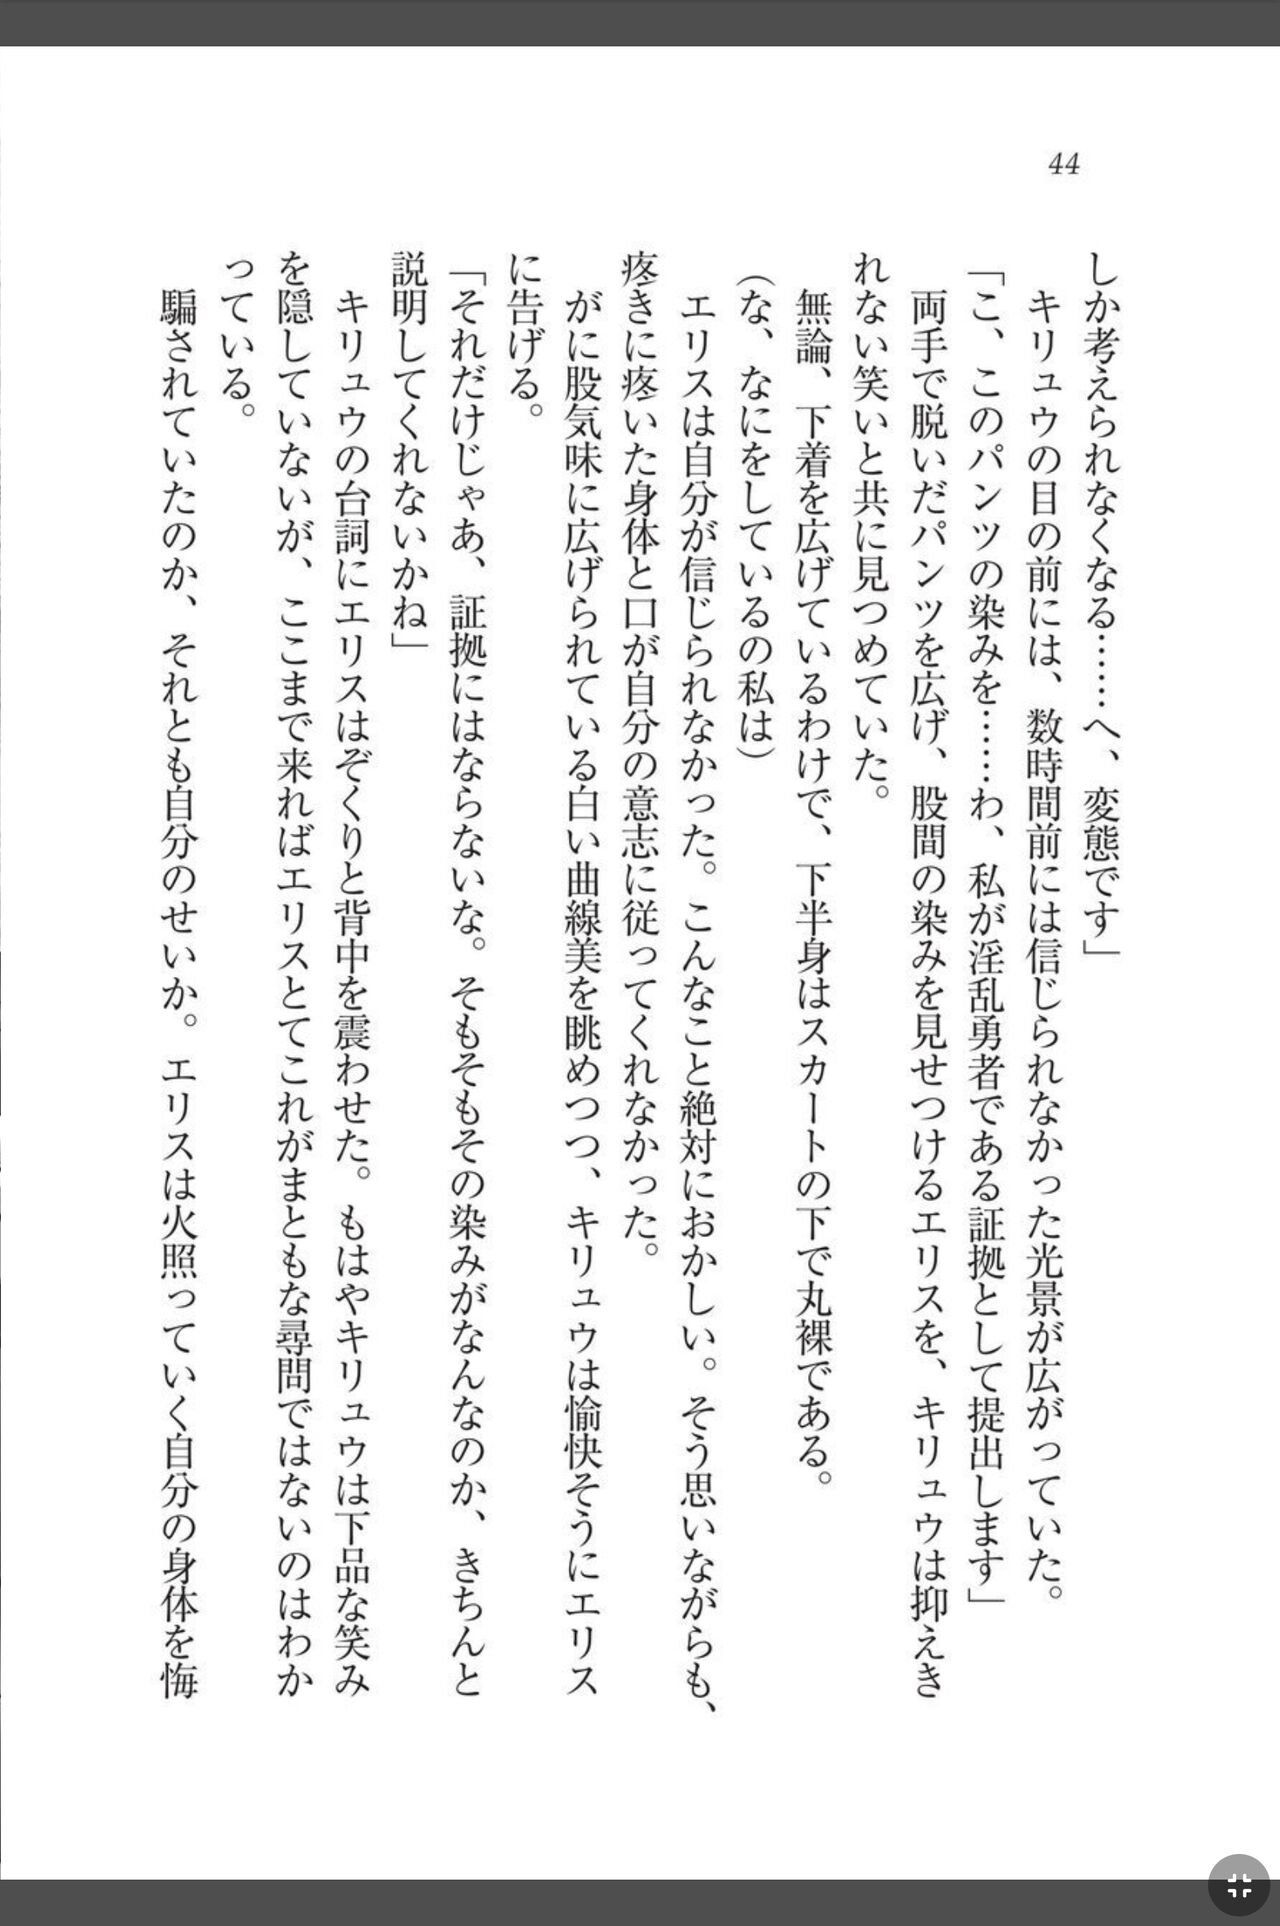 44
しか考えられなくなる……へ、変態です」
キリュウの目の前には、数時間前には信じられなかった光景が広がっていた。
「こ、このパンツの染みを……わ、私が淫乱勇者である証拠として提出します」
両手で脱いだパンツを広げ、股間の染みを見せつけるエリスを、キリュウは抑えき
れない笑いと共に見つめていた。
無論、下着を広げているわけで、下半身はスカートの下で丸裸である。
（な、なにをしているの私は）
エリスは自分が信じられなかった。こんなこと絶対におかしい。そう思いながらも、
疼きに疼いた身体と口が自分の意志に従ってくれなかった。
がに股気味に広げられている白い曲線美を眺めつつ、キリュウは愉快そうにエリス
に告げる。
「それだけじゃあ、証拠にはならないな。そもそもその染みがなんなのか、きちんと
説明してくれないかね」
キリュウの台詞にエリスはぞくりと背中を震わせた。もはやキリュウは下品な笑み
を隠していないが、ここまで来ればエリスとてこれがまともな尋問ではないのはわか
っている。
騙されていたのか、それとも自分のせいか。エリスは火照っていく自分の身体を悔